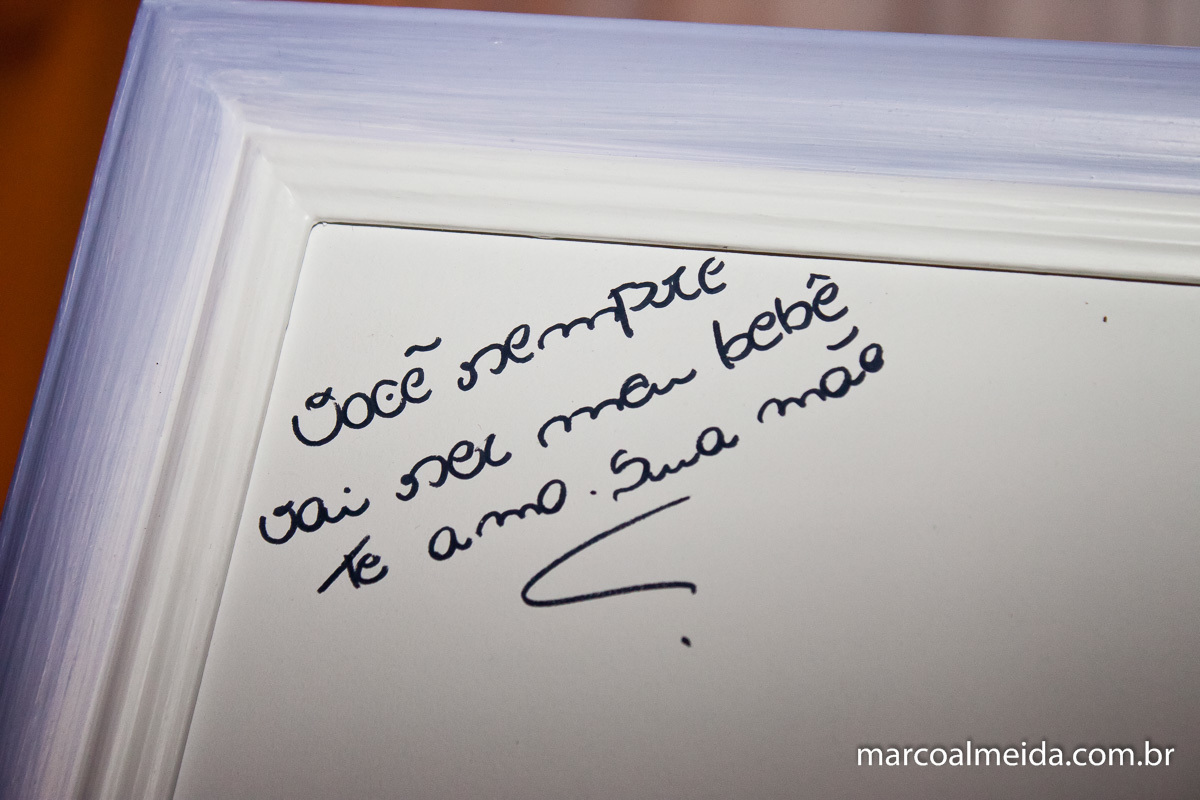 Você sempre
vai ser meu bebê
te amo. Sua mão
marcoalmeida.com.br